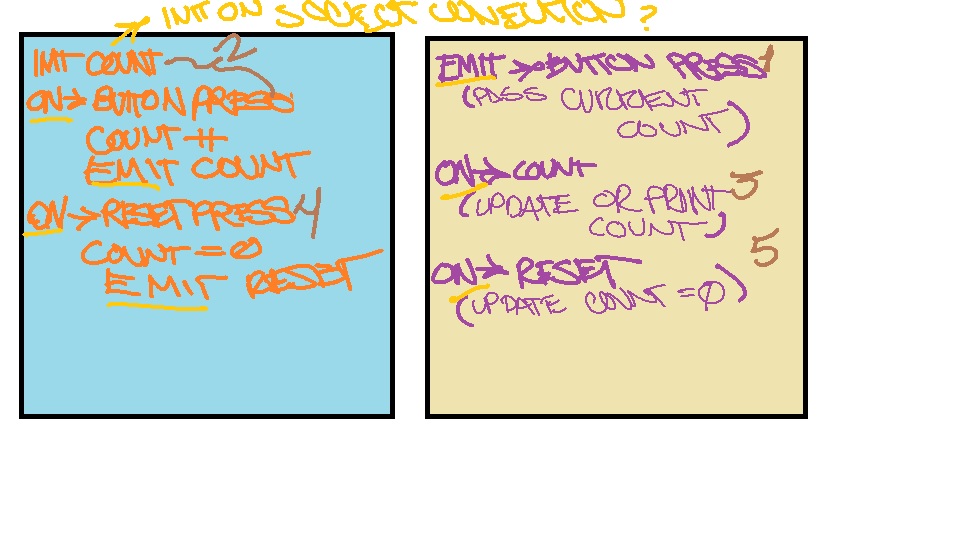 INIT ON SOCKET CONECTION ?
INIT COUNT 2
ON → BUTTON PRESS
COUNT ++
EMIT COUNT
ON → RESET PRESS 4
COUNT = 0
EMIT RESET
EMIT → BUTTON PRESS 1
(PASS CURRENT
COUNT)
ON → COUNT
(UPDATE OR PRINT 3
COUNT)
5
ON → RESET
(UPDATE COUNT = 0)